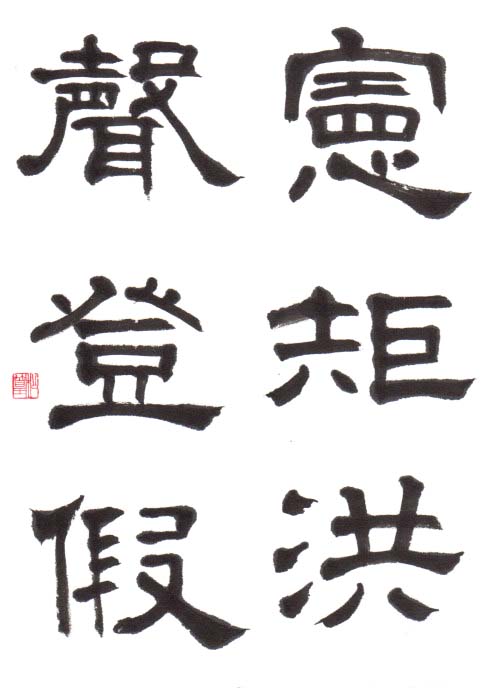 憲矩洪
聲登假